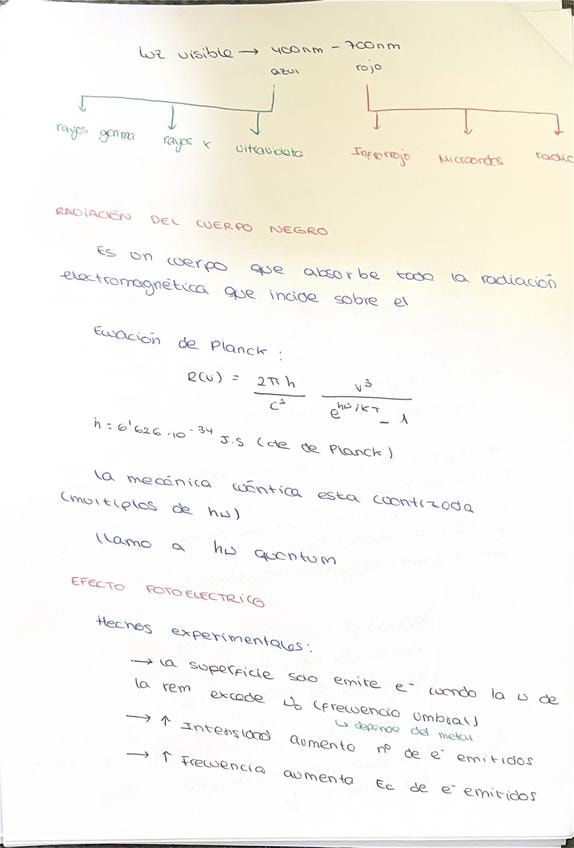 luz visible → 400nm - 700nm
azul rojo
rayos gamma rayos x ultravioleta Infrarrojo Microondas radio
RADIACIÓN DEL CUERPO NEGRO
Es un cuerpo que absorbe toda la radiación
electromagnética que incide sobre el
Ecuación de Planck :
R(ν) = 2πh / c² ν³ / e^hν/KT - 1
h = 6'626·10^-34 J.S (cte de Planck)
la mecánica cuántica esta cuantizada
(multiplos de hν)
llamo a hν quantum
EFECTO FOTOELECTRICO
Hechos experimentales:
→ la superficie solo emite e⁻ cuando la ν de
la rem excede ν₀ (frecuencia umbral)
↳ depende del metal
→ ↑ Intensidad aumenta nº de e⁻ emitidos
→ ↑ Frecuencia aumenta Ec de e⁻ emitidos